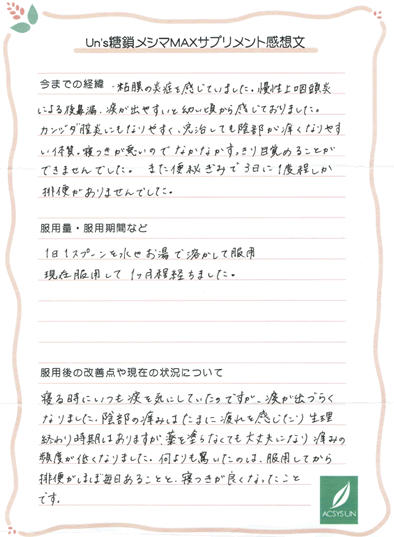 Un's糖鎖メシマMAXサプリメント感想文
今までの経緯
・粘膜の炎症を感じていました。慢性上咽頭炎
による後鼻漏、涙が出やすいと幼い頃から感じておりました。
カンジダ膣炎にもなりやすく、完治しても陰部が痒くなりやす
い体質。寝つきが悪いのでなかなかすっきり目覚めることが
できませんでした。また便秘ぎみで3日に1度程しか
排便がありませんでした。
服用量・服用期間など
1日1スプーンを水やお湯で溶かして服用
現在服用して1ヶ月程経ちました。
服用後の改善点や現在の状況について
寝る時にいつも涙を気にしていたのですが、涙が出づらく
なりました。陰部の痒みはたまに疲れを感じたり生理
終わり時期はありますが、薬を塗らなくても大丈夫になり痒みの
頻度が低くなりました。何よりも驚いたのは、服用してから
排便がほぼ毎日あることと、寝つきが良くなったこと
です。
ACSYSUN